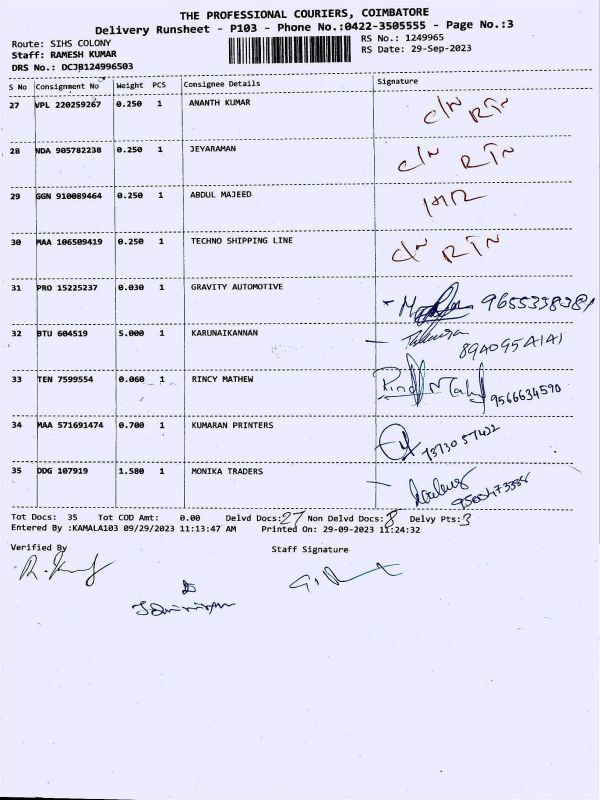 THE PROFESSIONAL COURIERS, COIMBATORE
Delivery Runsheet - P103 - Phone No.:0422-3505555 - Page No.:3
Route: SIHS COLONY RS No.: 1249965
Staff: RAMESH KUMAR RS Date: 29-Sep-2023
DRS No.: DCJB124996503
S No Consignment No Weight PCS Consignee Details Signature
27 VPL 220259267 0.250 1 ANANTH KUMAR C/N RTN
28 NDA 905782238 0.250 1 JEYARAMAN C/N RTN
29 GGN 910089464 0.250 1 ABDUL MAJEED
30 MAA 106509419 0.250 1 TECHNO SHIPPING LINE C/N RTN
31 PRO 15225237 0.030 1 GRAVITY AUTOMOTIVE 9655338381
32 BTU 604519 5.000 1 KARUNAIKANNAN
33 TEN 7599554 0.060 1 RINCY MATHEW 9566634590
34 MAA 571691474 0.700 1 KUMARAN PRINTERS
35 DDG 107919 1.580 1 MONIKA TRADERS
Tot Docs: 35 Tot COD Amt: 0.00 Delvd Docs: 27 Non Delvd Docs: 8 Delvy Pts: 3
Entered By :KAMALA103 09/29/2023 11:13:47 AM Printed On: 29-09-2023 11:24:32
Verified By Staff Signature